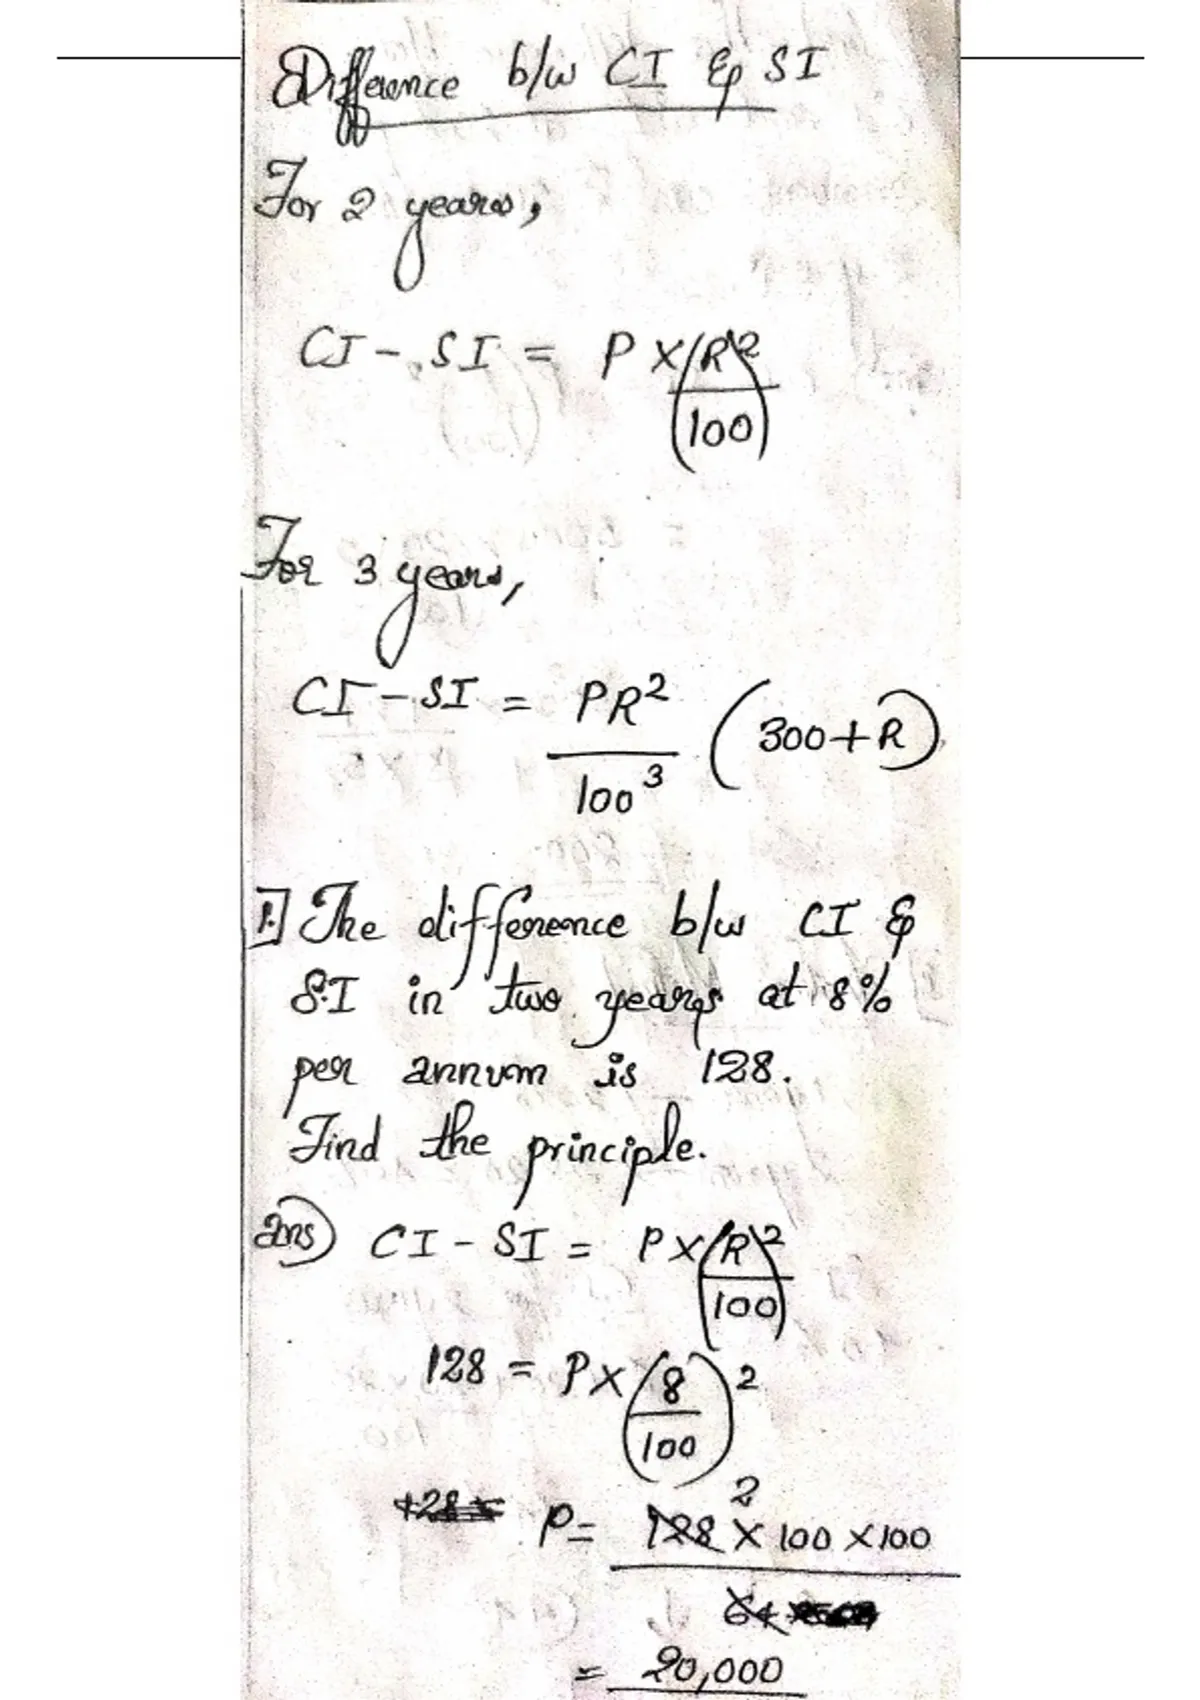 Difference b/w CI & SI
For 2 years,
CI - SI = P X (R/100)²
For 3 years,
CI - SI = PR²/100³ (300+R)
1.] The difference b/w CI &
S.I in two years at 8%
per annum is 128.
Find the principle.
ans) CI - SI = P X (R/100)²
128 = P X (8/100)²
P = 128 2 X 100 X 100 / 64
= 20,000